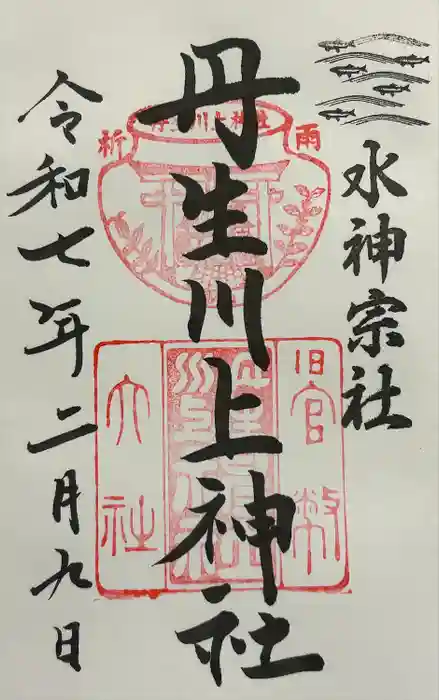 水神宗社
丹生川上神社
令和七年二月九日
祈雨
丹生川上神社
旧官幣
大社